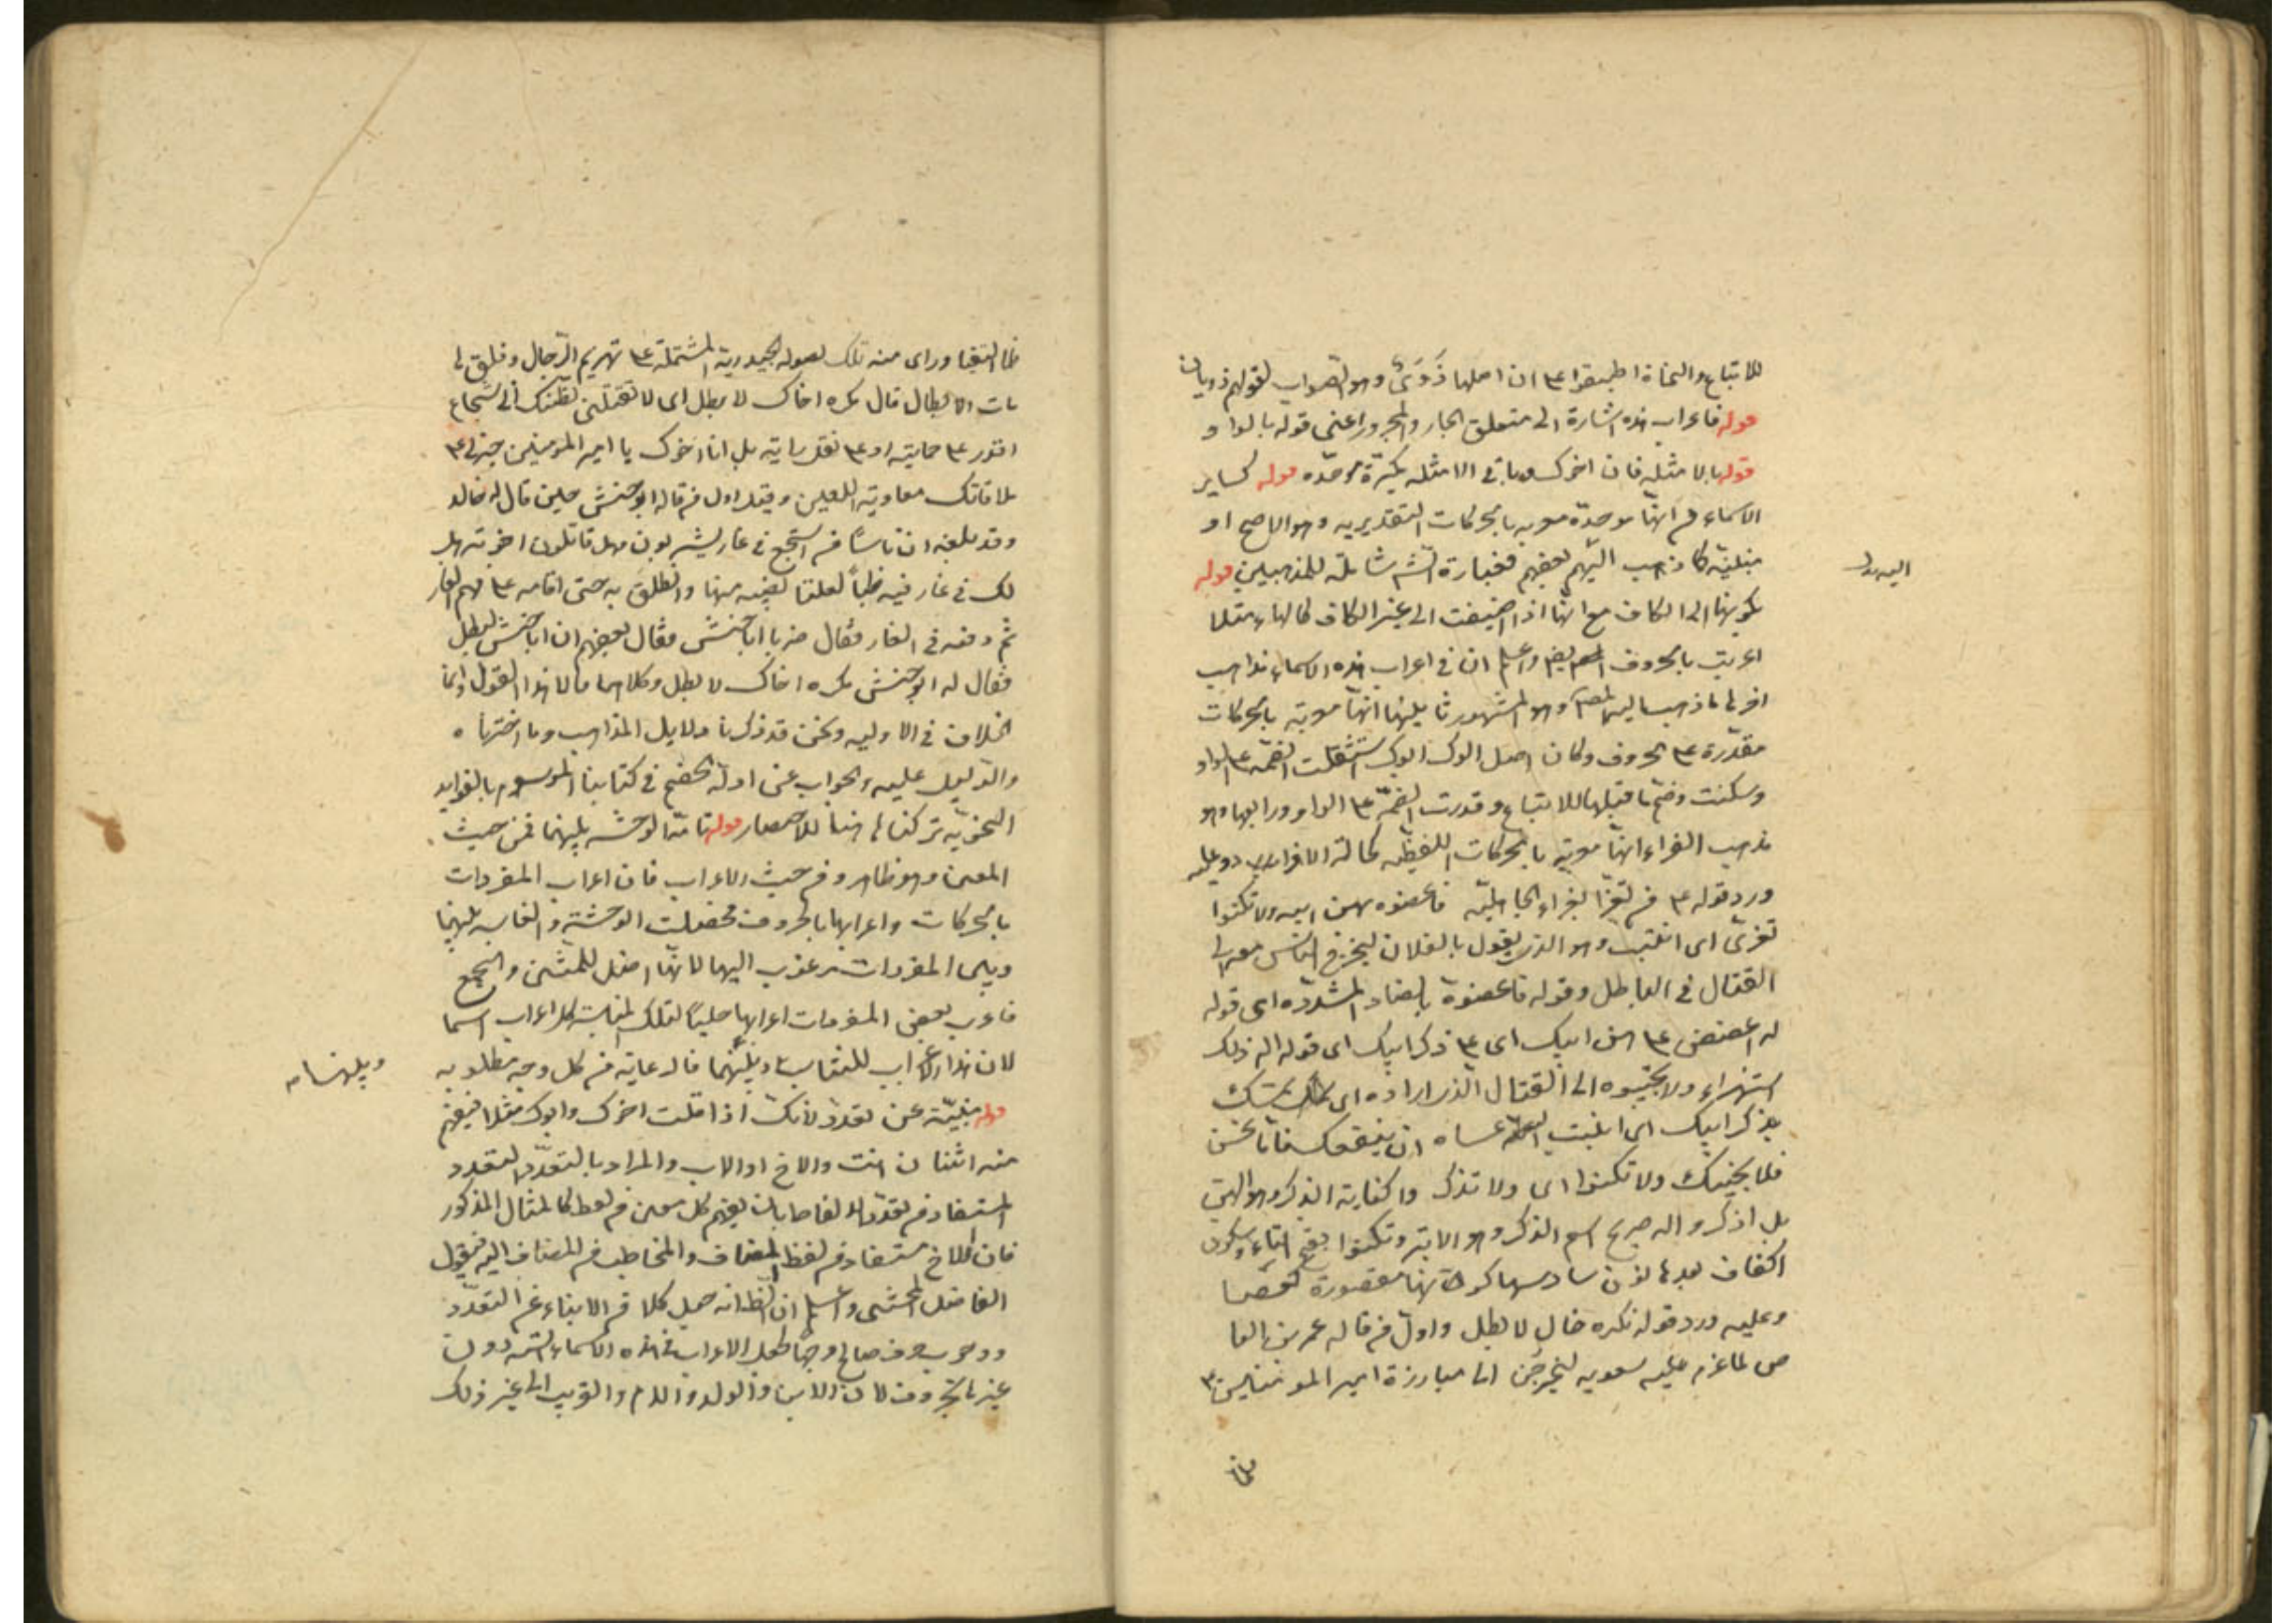 للاتباع والنحاة اطبقوا على ان اصلها ذَوَىٌ وهو الصواب لقولهم ذويان
قوله فاعراب هذه اشارة الى متعلق الجار والمجرور اعنى قوله بالواو
قوله بالامثلة فان اخوك وباقى الامثلة مكبّرة موحّده قوله كساير
الاسماء فى انها موحدة معربه بالحركات التقديريه وهو الاصح او
مبنيّة كما ذهب اليهم بعضهم فعبارة الشم شاملة للمذهبين قوله
اليه بدل
بكونها الى الكاف مع انها اذا اضيفت الى غير الكاف كالهاء مثلا
اعربت بالحروف ايضا واعلم ان فى اعراب هذه الاسماء مذاهب
اولها ما ذهب اليه المصـ وهو المشهور ثانيها انها معربة بالحركات
مقدّرة على الحروف وكان اصل ابوك ابوك استثقلت الضمة على الواو
وسكنت وضمّ ما قبلها للاتباع وقدرت الضمّة على الواو ورابعها وهو
مذهب الفراء انها معربة بالحركات اللفظية كحالة الافراد وعليه
ورد قوله ع من تعزّا بعزاء الجاهليّة فاعضوه بهن ابيه ولا تكنوا
تعزّى اى انتسب وهو الذى يقول بالفلان ليخرج الناس معه الى
القتال فى الباطل وقوله فاعضوه بالضاد المشدّده اى قوله
له اعضض على هن ابيك اى على ذكر ابيك اى قوله اله ذلك
استهزاء ولا تجيبوه الى القتال الذى اراده اى تمسك
بذكر ابيك اى عساه ان ينفعك فاما نحن
فلا نجيبك ولا تكنوا اى ولا تذكروا كناية الذكر وهو الهن
بل اذكروا له صريح اسم الذكر وهو الاير وتكنوا بفتح التاء وسكون
الكاف بعدها نون سادسها كونها مقصورة كعصا
وعليه ورد قوله مكره اخاك لا بطل واول من قاله عمرو بن العا
ص لما عزم عليه معويه ليخرجن الى مبارزة امير المومنين ع
فلما
فلما التقيا وراى منه تلك الصوله الحيدرية المشتملة على تهريم الرّجال وفلق ها
مات الابطال قال مكره اخاك لا بطل اى لا تقتلنى تظننك انى شجاع
اقدر على حمايته او على نقل رايته بل انا اخوك يا امير المومنين جبرنى على
ملاقاتك معاوية اللعين وقيل اول من قاله ابو حنش حين قال له خاله
وقد بلغه ان ناسا من اشجع فى غار يشربون وهل قاتلون اخوته هل
لك فى غار فيه ظباء لعلنا نصيب منها وانطلق به حتى اقامه على فم الغار
ثم دفعه فى الغار فقال ضربا ابا حنش فقال بعضهم ان ابا حنش لبطل
فقال له ابو حنش مكره اخاك لا بطل وكلاهما قالا هذا القول وانما
الخلاف فى الاوليه ونحن قد ذكرنا دلايل المذاهب وما اخترناه
والدليل عليه والجواب عن ادلة الخصم فى كتابنا الموسوم بالفوايد
النحويّه تركناها هنا للاختصار قوله تامّة الوحشه بينهما فمن حيث
المعنى وهو ظاهر ومن حيث الاعراب فان اعراب المفردات
بالحركات واعرابها بالحروف فحصلت الوحشة والمناسبه بينهما
وبين المفردات مرغوب اليها لانها اصل للمثنى والجمع
فاعرب بعض المفردات اعرابها جلبا لتلك المناسبة لا كل اعرابهما
لان هذا الاعراب للتناسب وبينهما فالرعاية من كل وجه مطلوبه
وبينهما
قوله مبنيّة عن تعدد لانك اذا قلت اخوك وابوك مثلا فيفهم
منه اثنان انت والاخ او الاب والمراد بالتعدّد التعدد
المستفاد من تعدّد الالفاظ بان يفهم كل معنى من لفظ كالمثال المذكور
فان الاخ مستفاد من لفظ المضاف والمخاطب من المضاف اليه فيقول
الفاضل المحشى واعلم ان الظ انه حمل كلا من الانباء عن التعدّد
ووجود حرف صالح وجها لجعل الاعراب فى هذه الاسماء الستّه دون
غيرها بالحروف لان الابن والولد والام والقريب الى غير ذلك